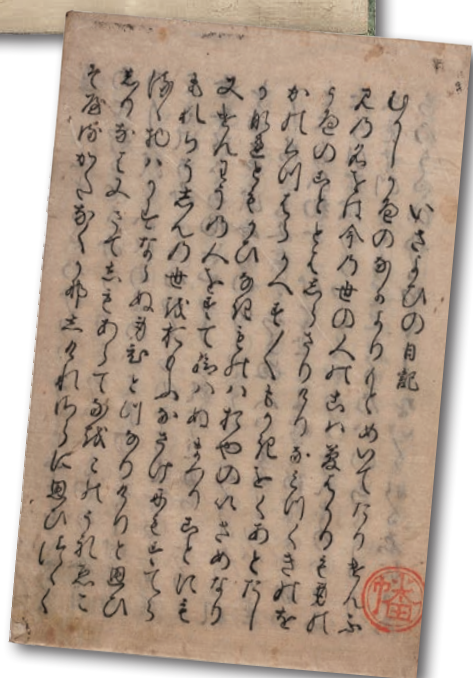 いさよひの日記
むかしかへのなかよりもとめいてたりけんふ
みの名をは今の世の人のこは夢はかりも身の
うへのことゝはしらさりけりなみつくきのを
かのくつはらかへす〳〵もかきをくあとたし
かなれともかひなきものはおやのいさめなり
又けんわうの人をすて給はぬまつりことにも
もれちうしんの世をおもふなさけにもすてら
るゝ物はかすならぬ身ひとつなりけりと思ひ
しりなは又さてしもあらてなをこのうれへこ
そやるかたなくかなしけれさらに思ひつゝく
幡